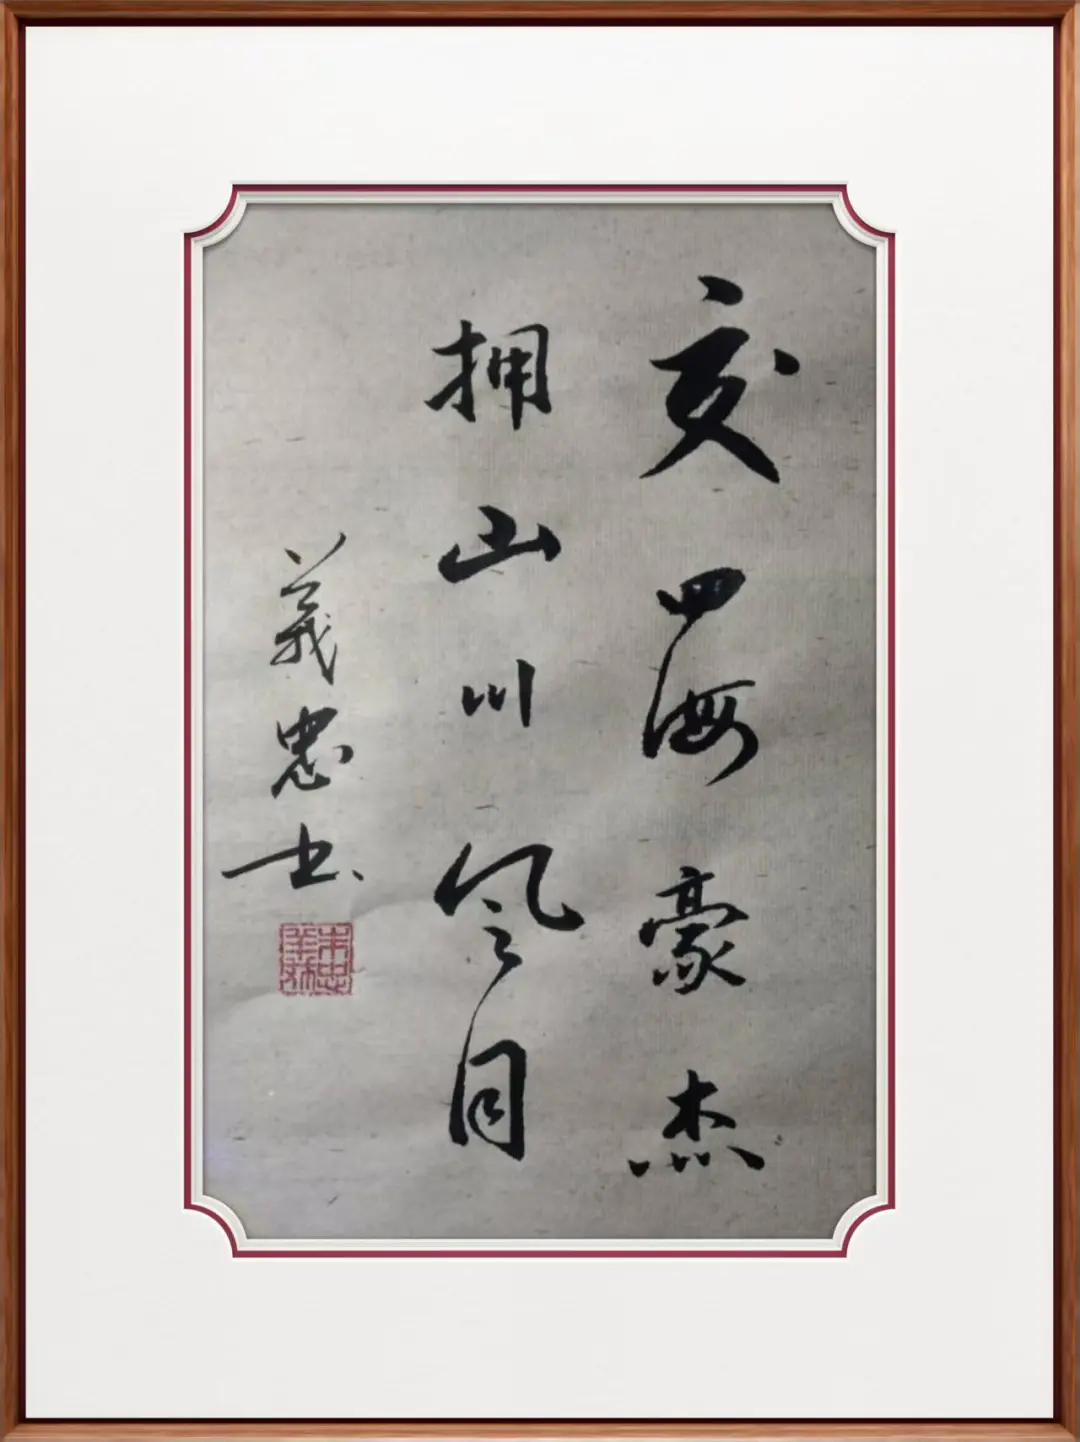 交四海豪杰
拥山川风月
義忠书